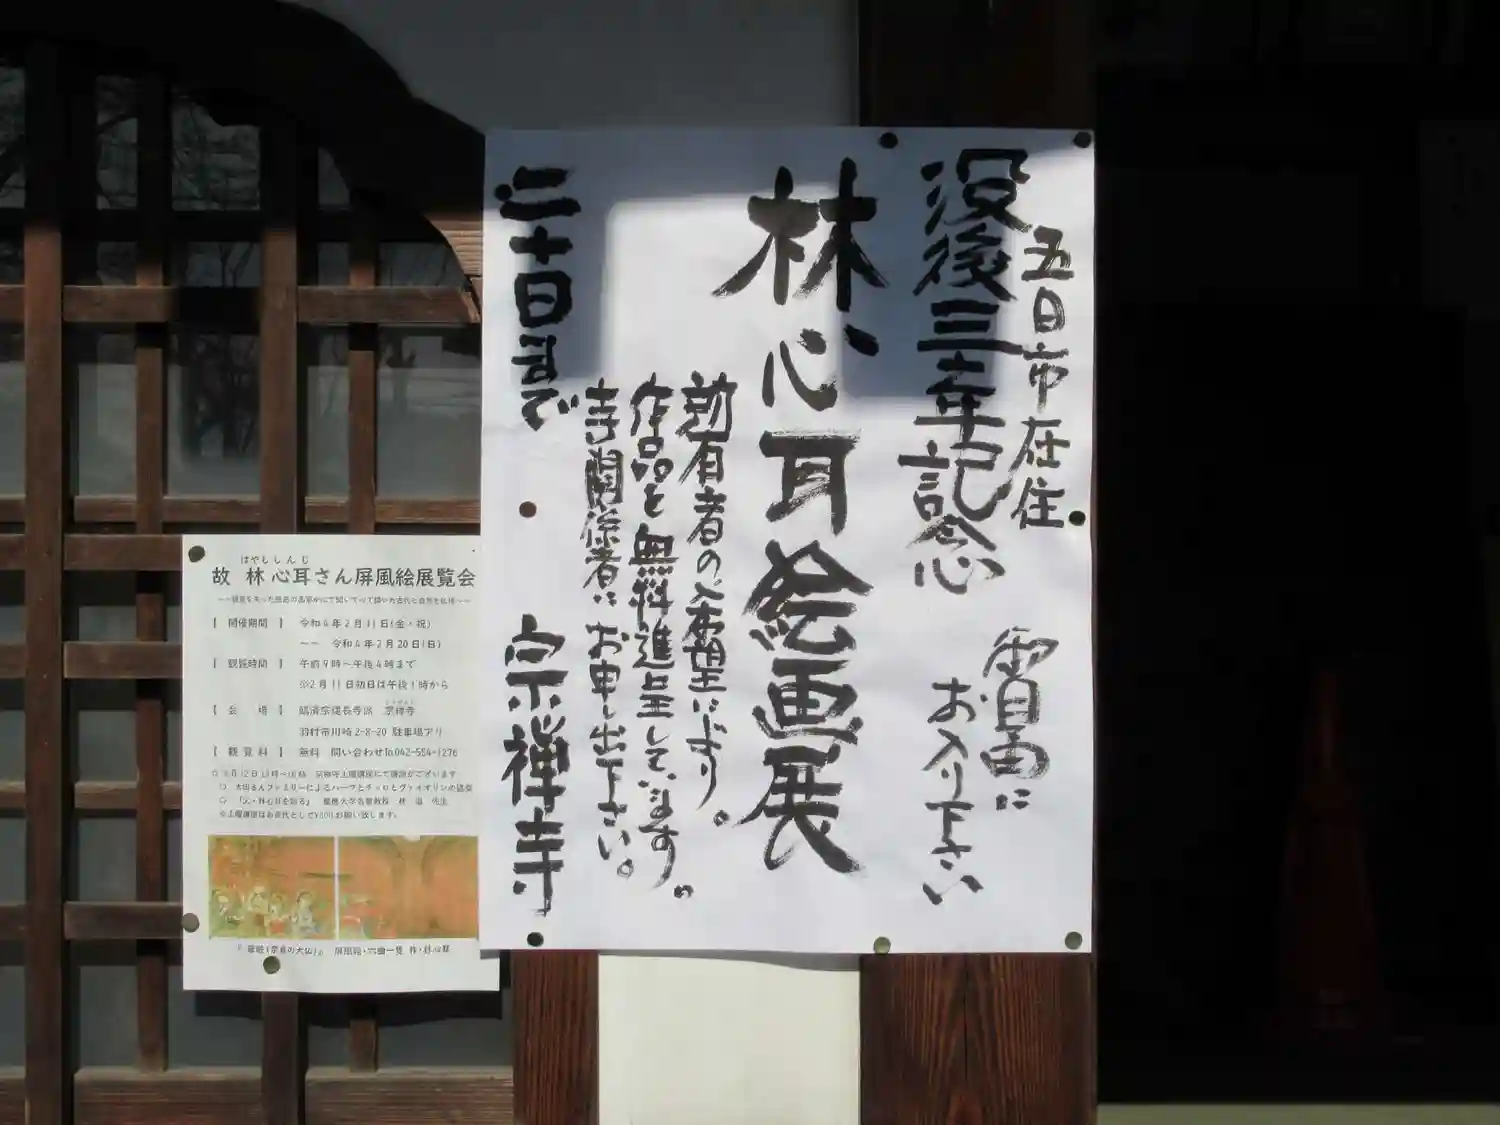 五日市在住
没後三年記念
自由に
お入り下さい
林心耳絵画展
者の希望により
作品を無料進呈しています。
寺関係者にお申し出下さい。
二十日まで
宗禅寺
はやししんじ
故 林心耳さん屏風絵展覧会
【 開催期間 】 令和4年2月11日(金・祝)
~~ 令和4年2月20日(日)
【 観覧時間 】 午前9時～午後4時まで
※2月11日初日は午後1時から
【 会 場 】 臨済宗建長寺派 宗禅寺
羽村市川崎2-8-20 駐車場アリ
【 観覧料 】 無料 問い合わせ℡042-554-1276